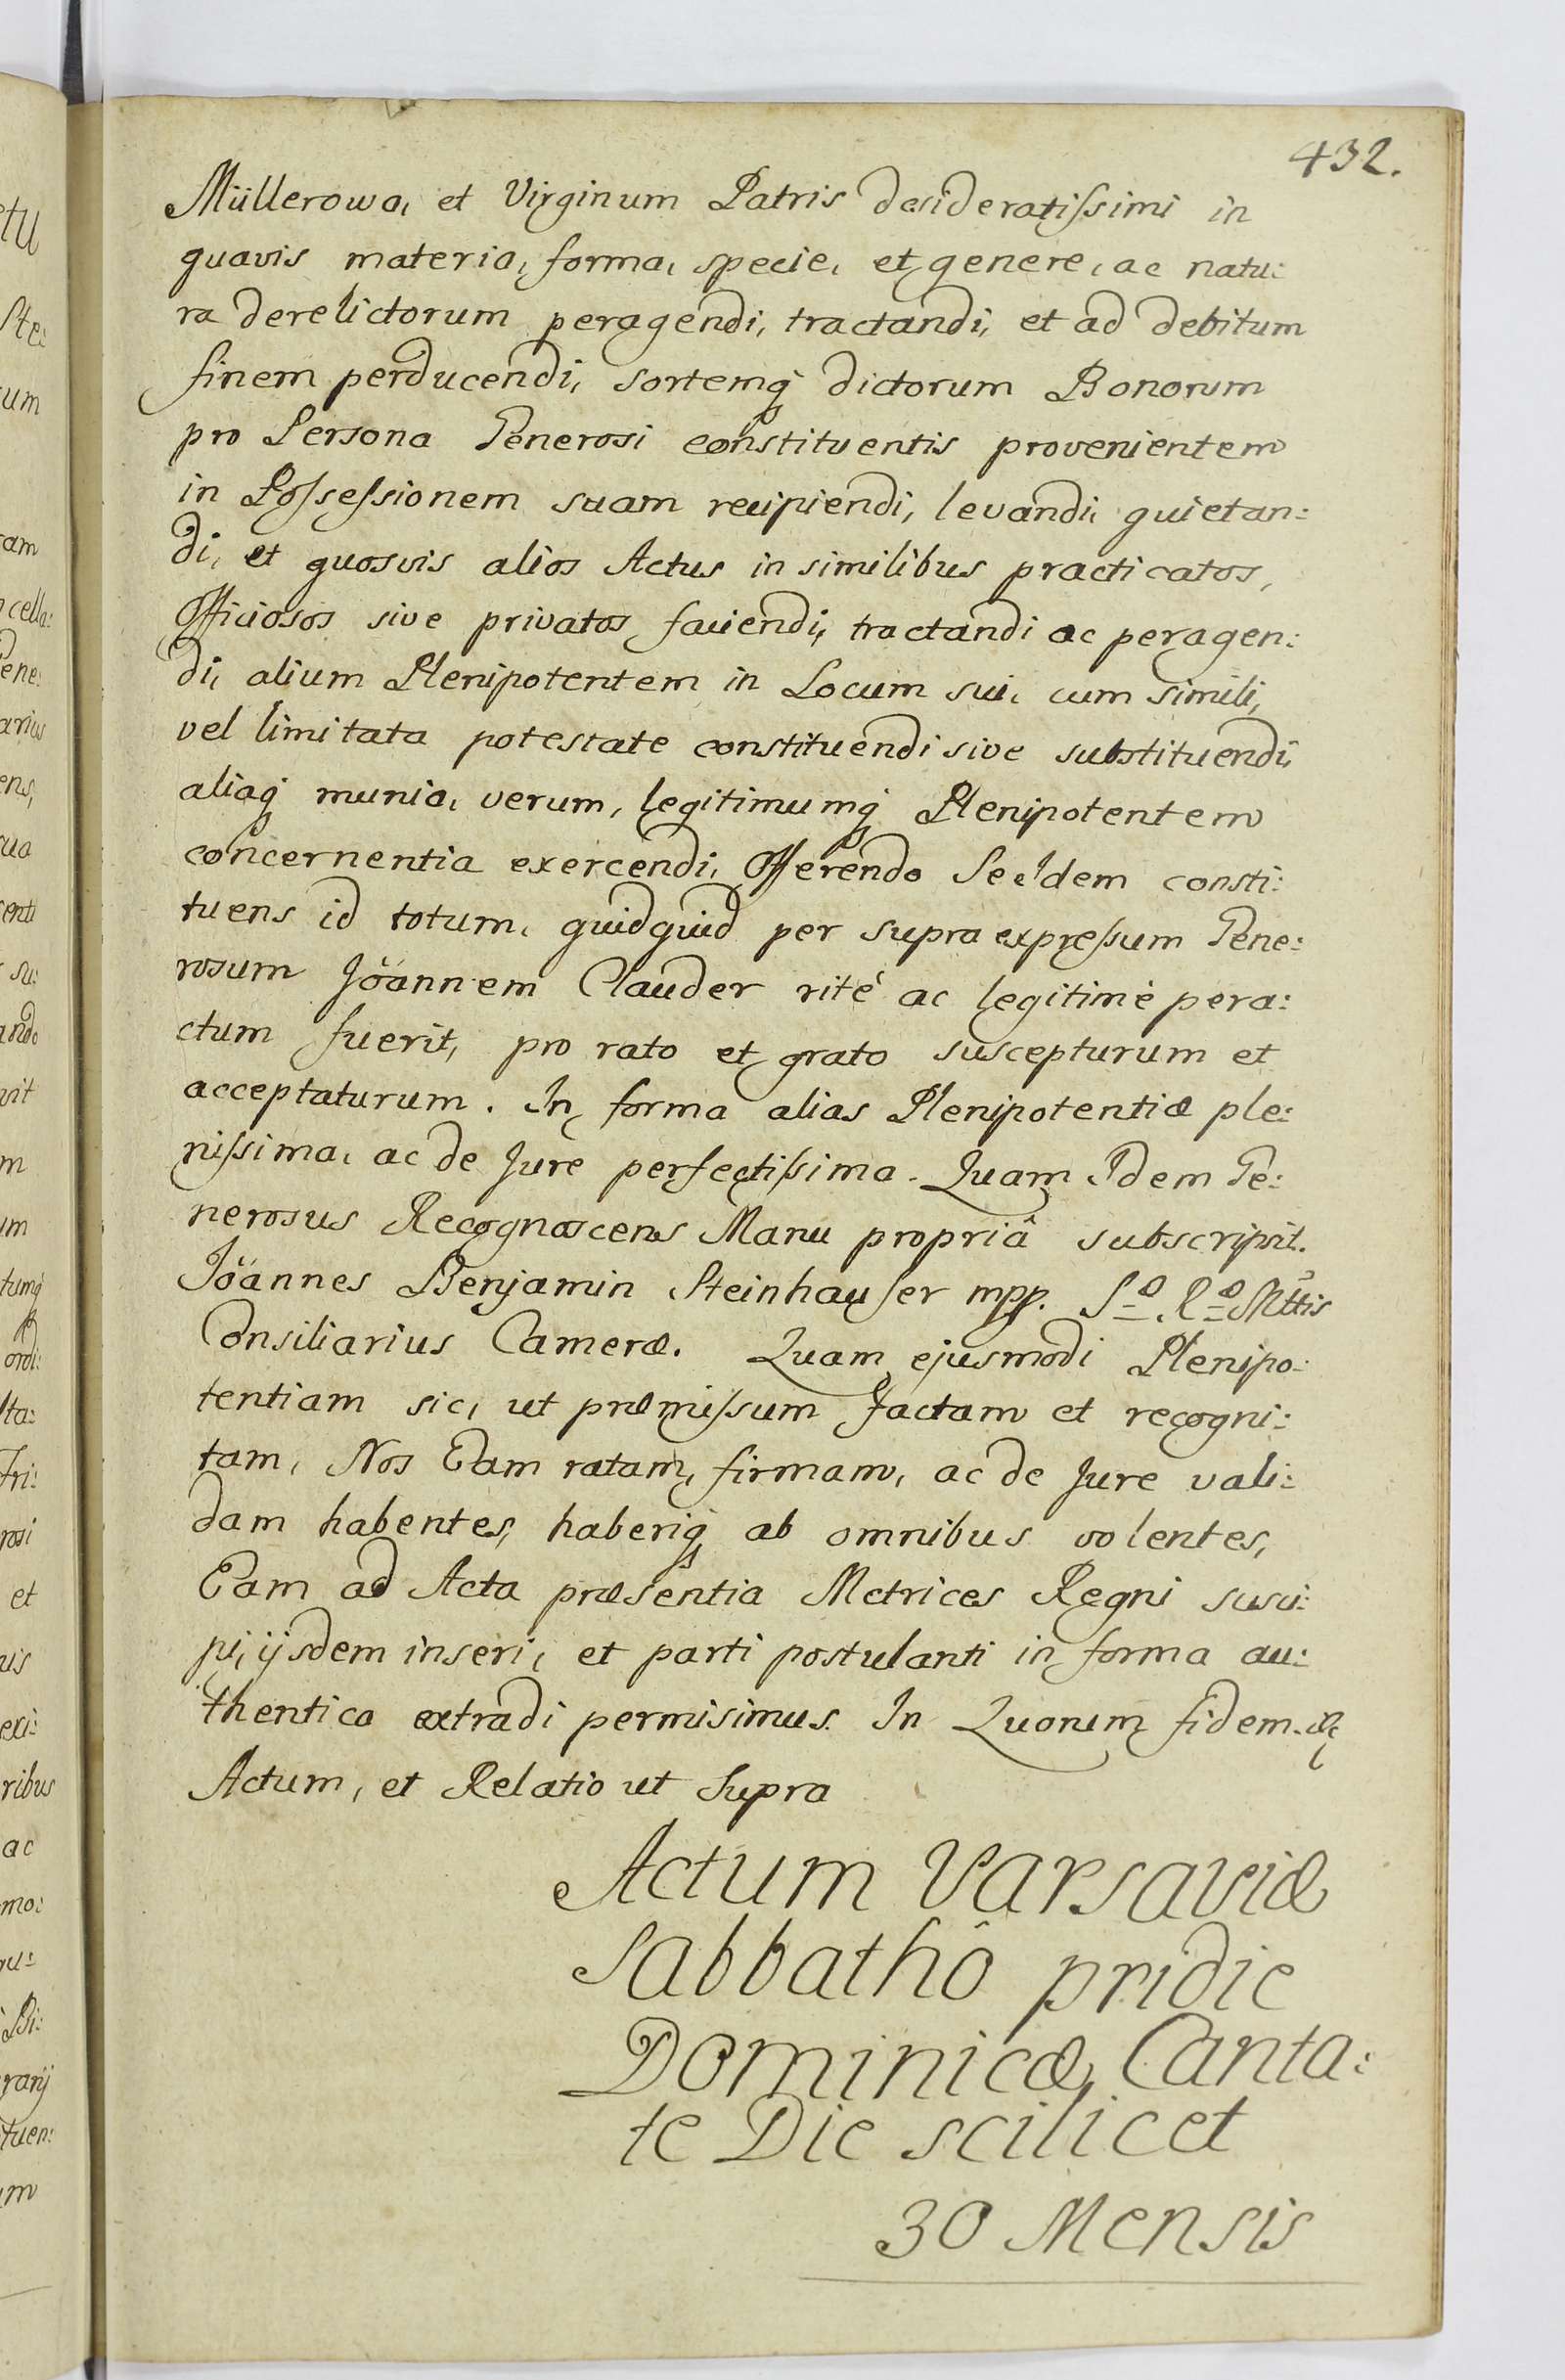 432.
Müllerowa, et Virginum Patris desideratissimi in
quavis materia, forma, specie, et genere, ac natu:
ra derelictorum peragendi, tractandi, et ad debitum
finem perducendi, sortemq dictorum Bonorum
pro Persona Generosi constituentis provenientem
in Possessionem suam recipiendi, levandi, quietan:
di, et quosvis alios Actus in similibus practicatos,
Officiosos sive privatos faciendi, tractandi ac peragen:
di, alium Plenipotentem in Locum sui, cum simili,
vel limitata potestate constituendi sive substituendi,
aliaq munia, verum, legitimumq Plenipotentem
concernentia exercendi, Offerendo Se Idem consti:
tuens id totum, quidquid per supra expressum Gene:
rosum Jöannem Clauder rité ac legitimè pera:
ctum fuerit, pro rato et grato suscepturum et
acceptaturum. In forma alias Plenipotentiæ ple:
nissima, ac de Jure perfectissima. Quam Idem Ge:
nerosus Recognoscens Manu propriâ subscripsit.
Jöannes Benjamin Steinhauser mpp. S=æ. R=æ Mttis
Consiliarius Cameræ. Quam ejusmodi Plenipo:
tentiam sic, ut præmissum factam et recogni:
tam, Nos Eam ratam, firmam, ac de Jure vali:
dam habentes, haberiq ab omnibus volentes,
Eam ad Acta præsentia Metrices Regni susci:
pi, ijsdem inseri, et parti postulanti in forma au:
thentica extradi permisimus. In Quorum fidem.
Actum, et Relatio ut Supra
Actum Varsaviæ
Sabbathô pridie
Dominicæ Canta:
te Die scilicet
30 Mensis